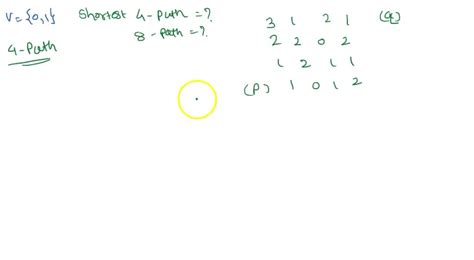 V = {0,1} Shortest 4-Path = ?
8-Path = ?
4-Path
3 1 2 1 (q)
2 2 0 2
1 2 1 1
(P) 1 0 1 2